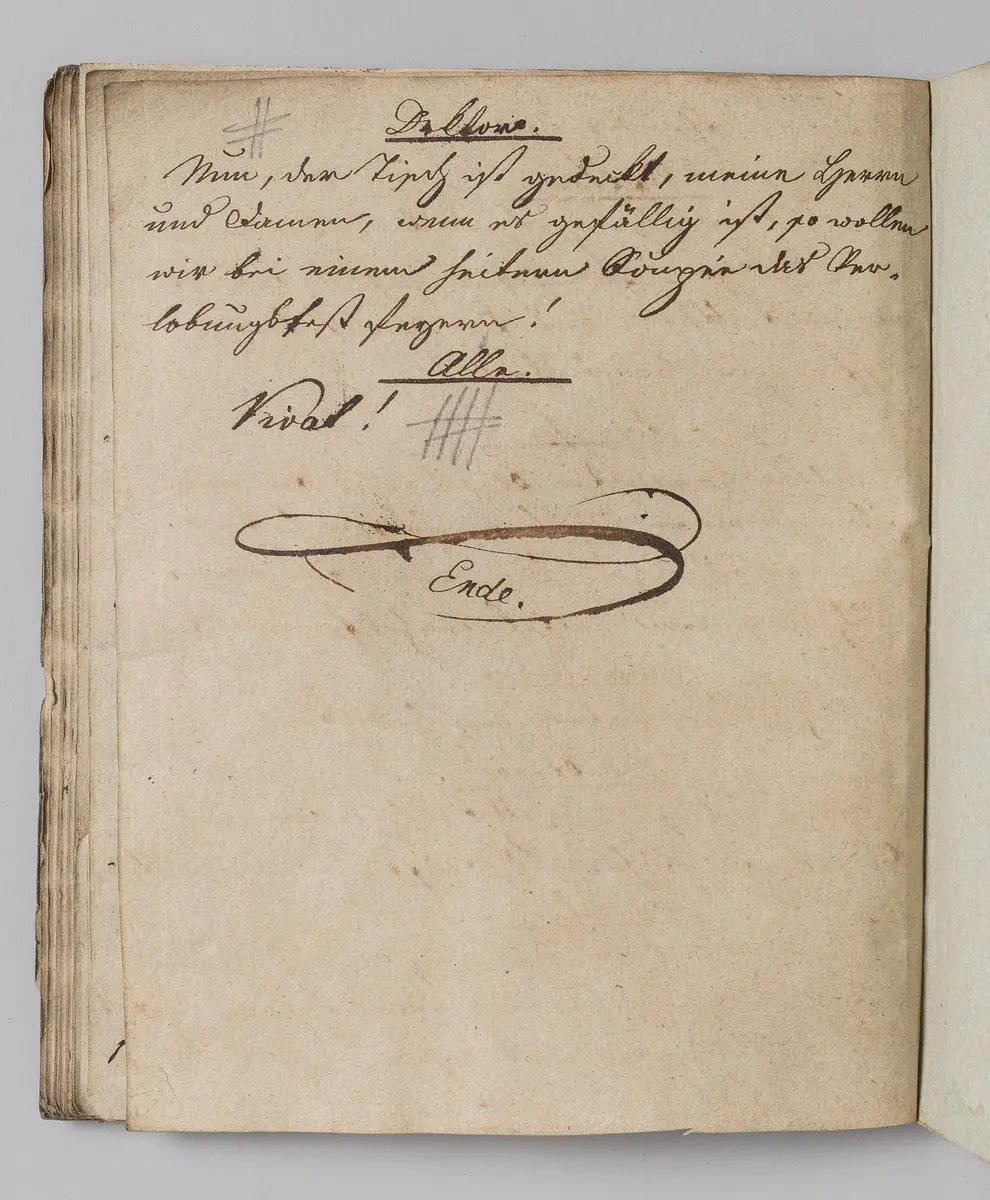 Doktor.
Nun, der Tisch ist gedeckt, meine Herrn
und Damen, wenn es gefällig ist, so wollen
wir bei einem heitern Soupée das Ver-
lobungsfest feyern!
Alle.
Vivat!
Ende.